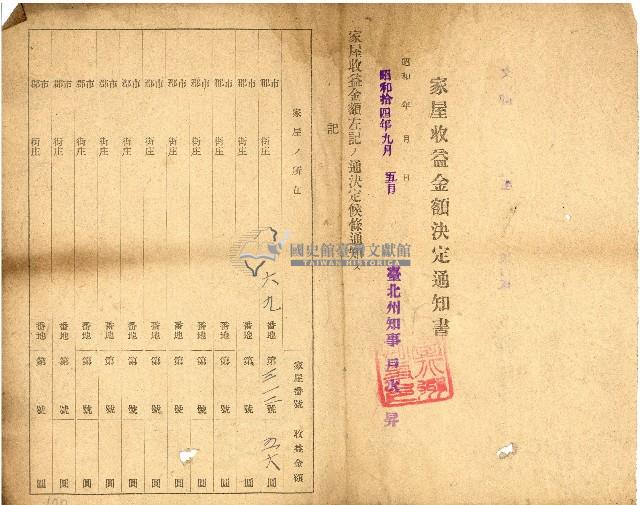 家屋收益金額決定通知書
昭和 年 月 日
昭和拾四年九月 五日
臺北州知事
昇
家屋收益金額左記ノ通決定候條通知ス
記
家屋ノ所在
家屋番號
收益金額
市郡 街庄 六九 番地 第 三一三 號 五六 圓
市郡 街庄 番地 第 號 圓
市郡 街庄 番地 第 號 圓
市郡 街庄 番地 第 號 圓
市郡 街庄 番地 第 號 圓
市郡 街庄 番地 第 號 圓
市郡 街庄 番地 第 號 圓
市郡 街庄 番地 第 號 圓
市郡 街庄 番地 第 號 圓
市郡 街庄 番地 第 號 圓
國史館臺灣文獻館
TAIWAN HISTORICA